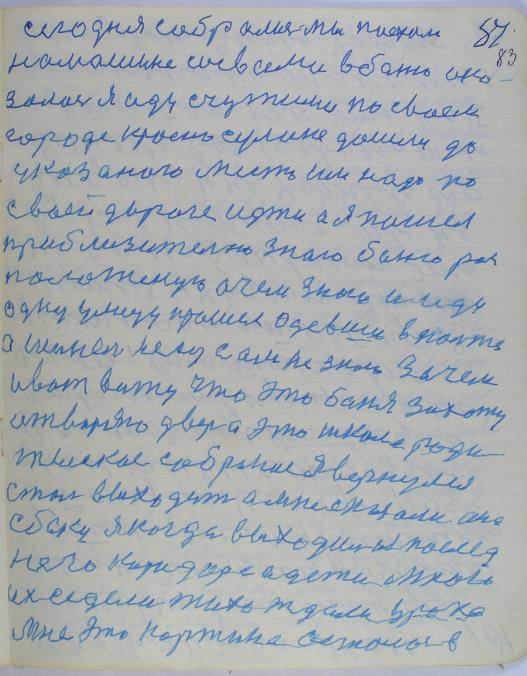 сегодня собрались мы поехали 87
намашине совсеми вбаню ока 83
залося я иду счужими по своем
городе красно сулине дошли до
указаного места им надо по
своей дороге идти а я пошел
приблизително знаю баню рас
положеную очем знаю и иду
одну улицу прошел одевши в пальто
а шинел несу сам не знаю зачем
ивот вижу что это баня захожу
отворяю двер а это школа роди
телское собрание я вернулся
стал выходит а мне
сбоку я когда выходил из послед
него коридора а дети много
их седели тихо ждали урока
мне эта картина осталась в